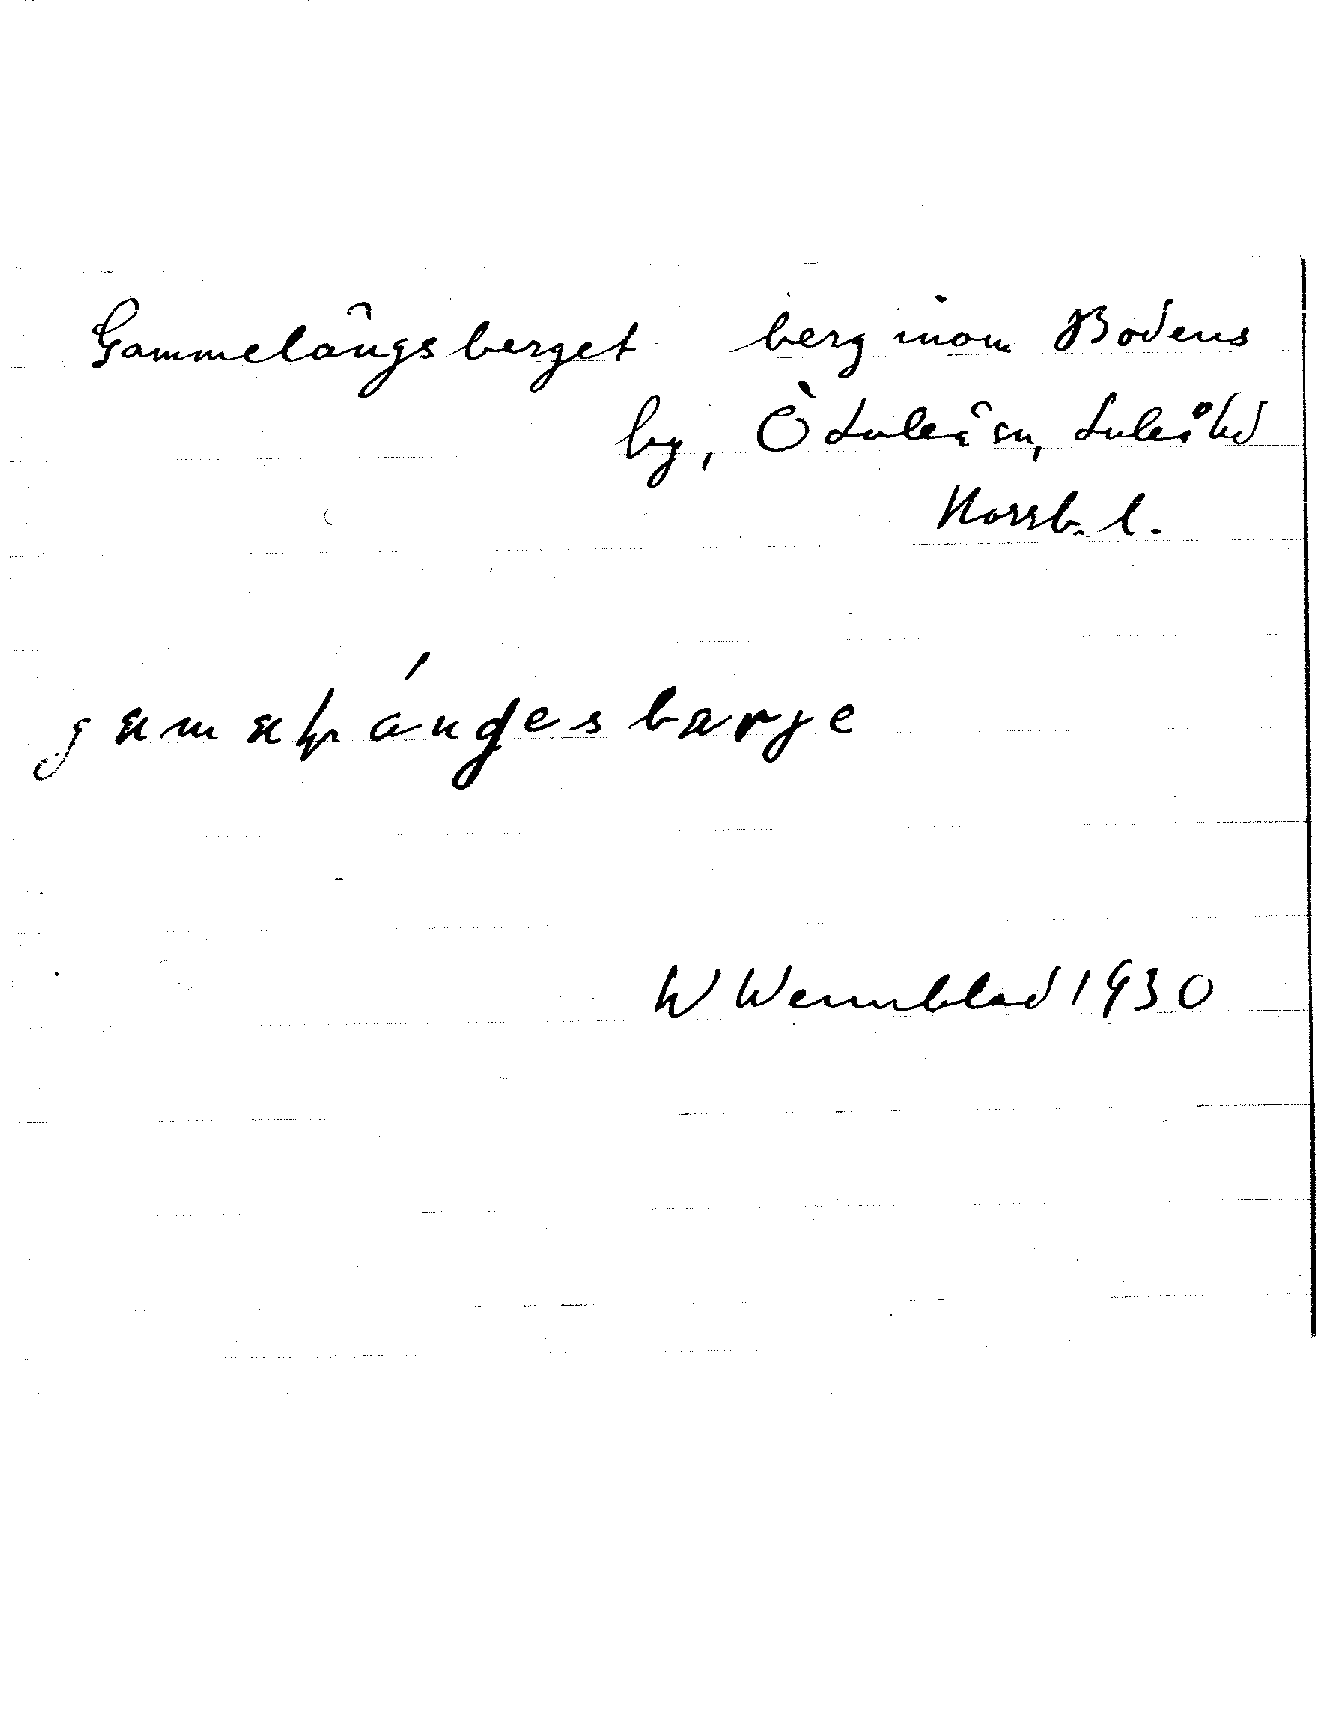 Gammelängsberget berg inom Bodens
by, Ö Luleå sn, Luleå hd
Norrb. l.
W Wennblad 1930